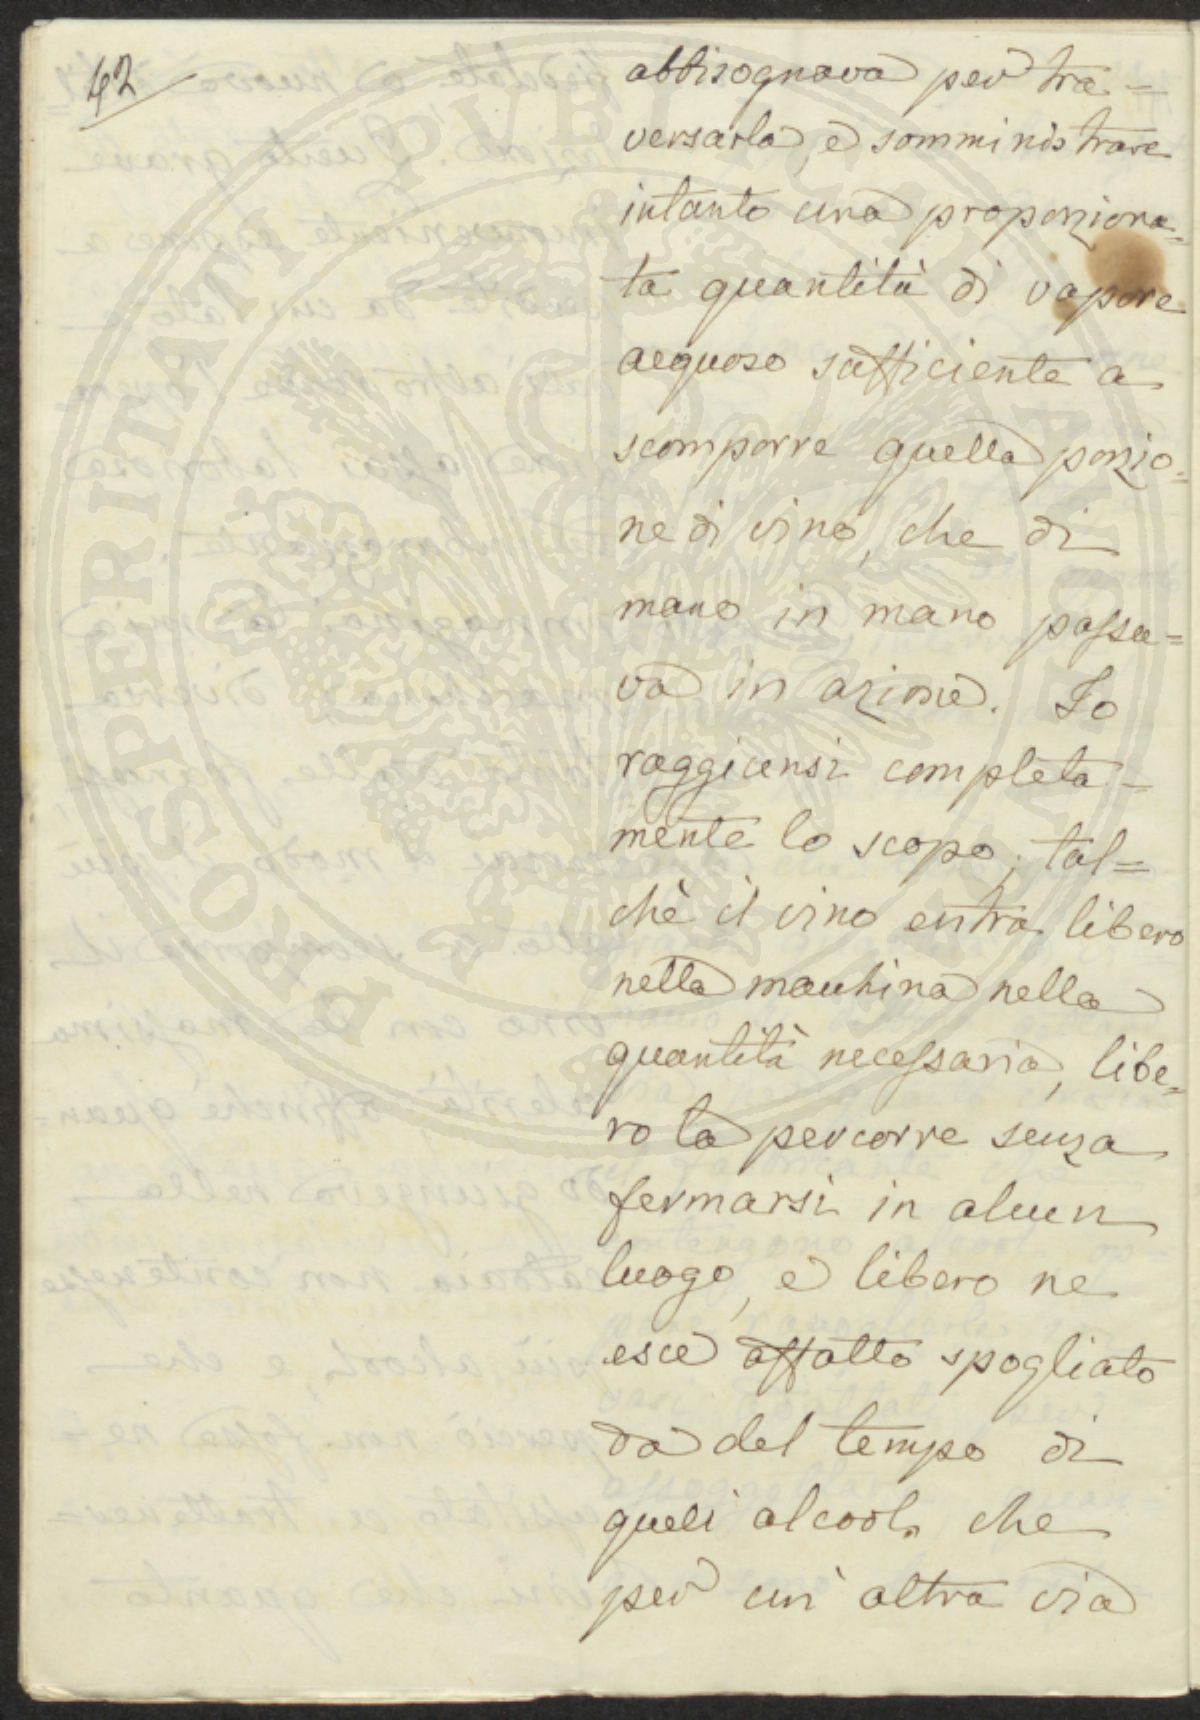 42
abbisognava per tra=
versarla, e somministrare
intanto una proporziona=
ta quantità di vapore
acquoso sufficiente a
scomporre quella porzio=
ne di vino, che di
mano in mano passa=
va in azione. Io
raggiunsi completa=
mente lo scopo, tal=
chè il vino entra libero
nella macchina nella
quantità necessaria, libe=
ro la percorre senza
fermarsi in alcun
luogo, e libero ne
esce affatto spogliato
da del tempo di
quell alcool. che
per un' altra via
PROSPERITATI PVBLICAE